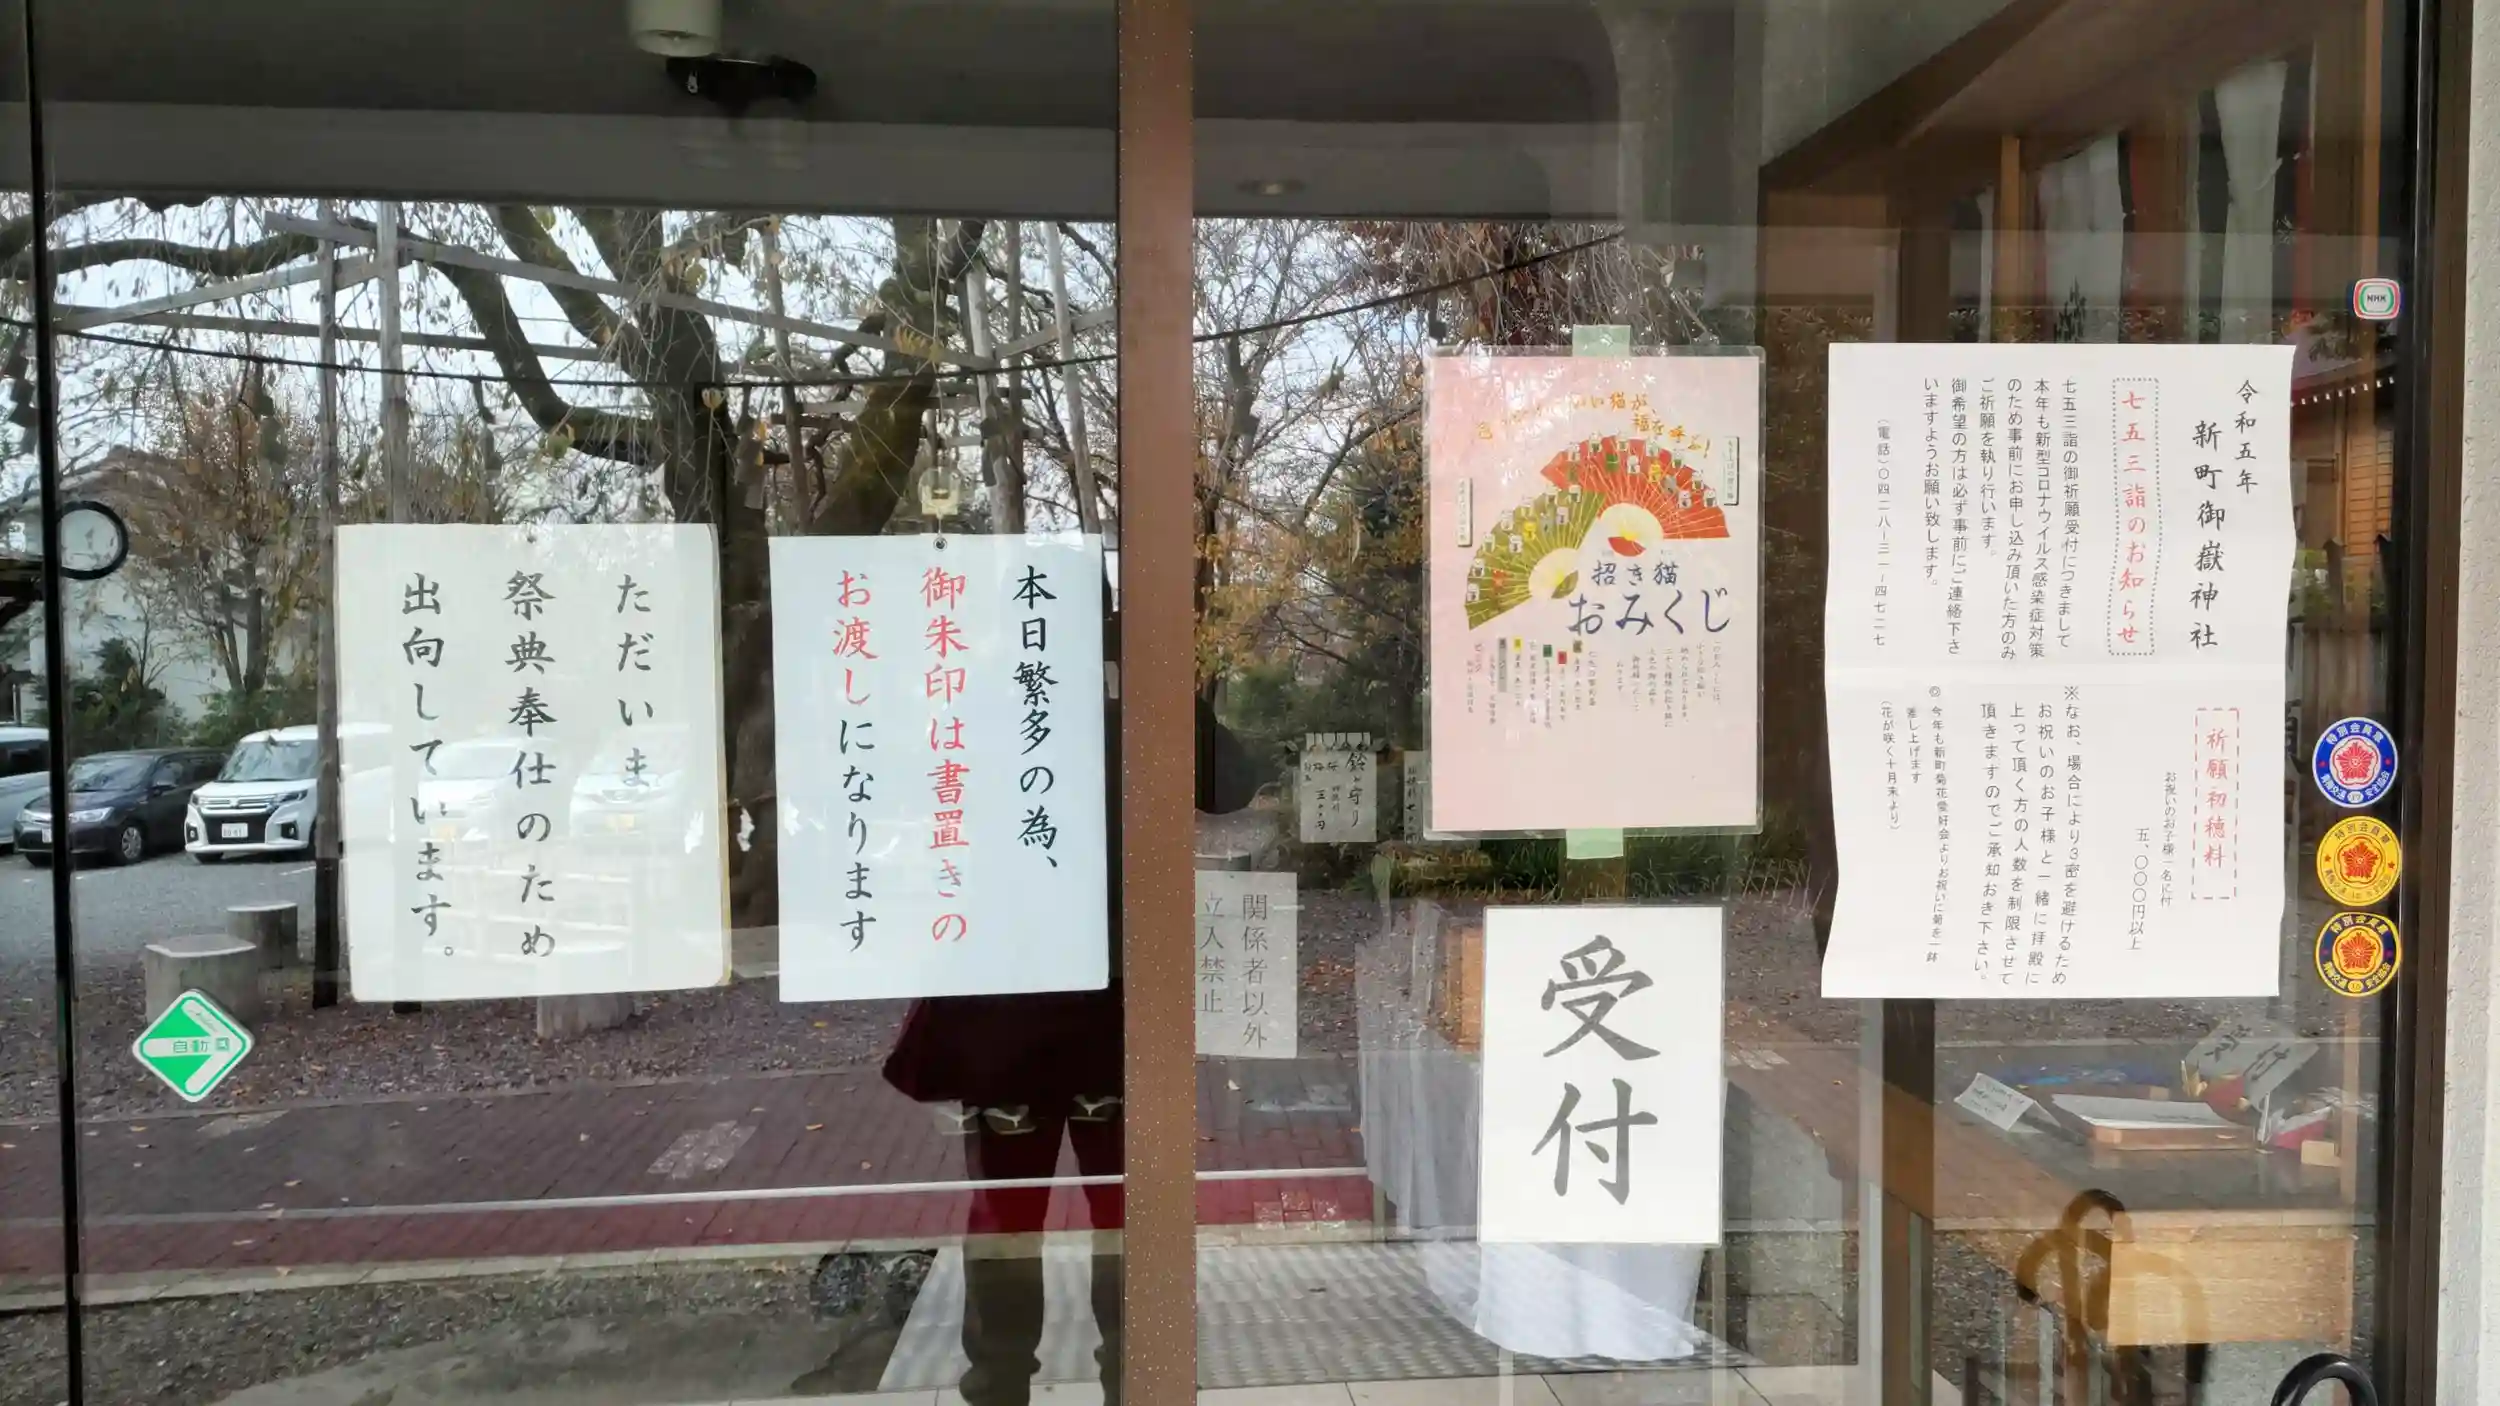 ただいま
祭典奉仕のため
出向しています。
本日繁多の為、
御朱印は書置きの
お渡しになります
自動
関係者以外
立入禁止
鈴守り
いい猫が、
福を呼ぶ!
招き猫
おみくじ
受付
令和五年
新町御嶽神社
七五三詣のお知らせ
七五三詣の御祈願受付につきまして
本年も新型コロナウイルス感染症対策
のため事前にお申し込み頂いた方のみ
ご祈願を執り行います。
御希望の方は必ず事前にご連絡下さ
いますようお願い致します。
(電話)〇四二八ー三一ー四七二七
祈願初穂料
お祝いのお子様一名に付
五、〇〇〇円以上
※なお、場合により3密を避けるため
お祝いのお子様と一緒に拝殿に
上って頂く方の人数を制限させて
頂きますのでご承知おき下さい。
◎今年も新町菊花愛好会よりお祝いに菊を一鉢
差し上げます
(花が咲く十月末より)
NHK
特別会員章
特別会員章
特別会員章